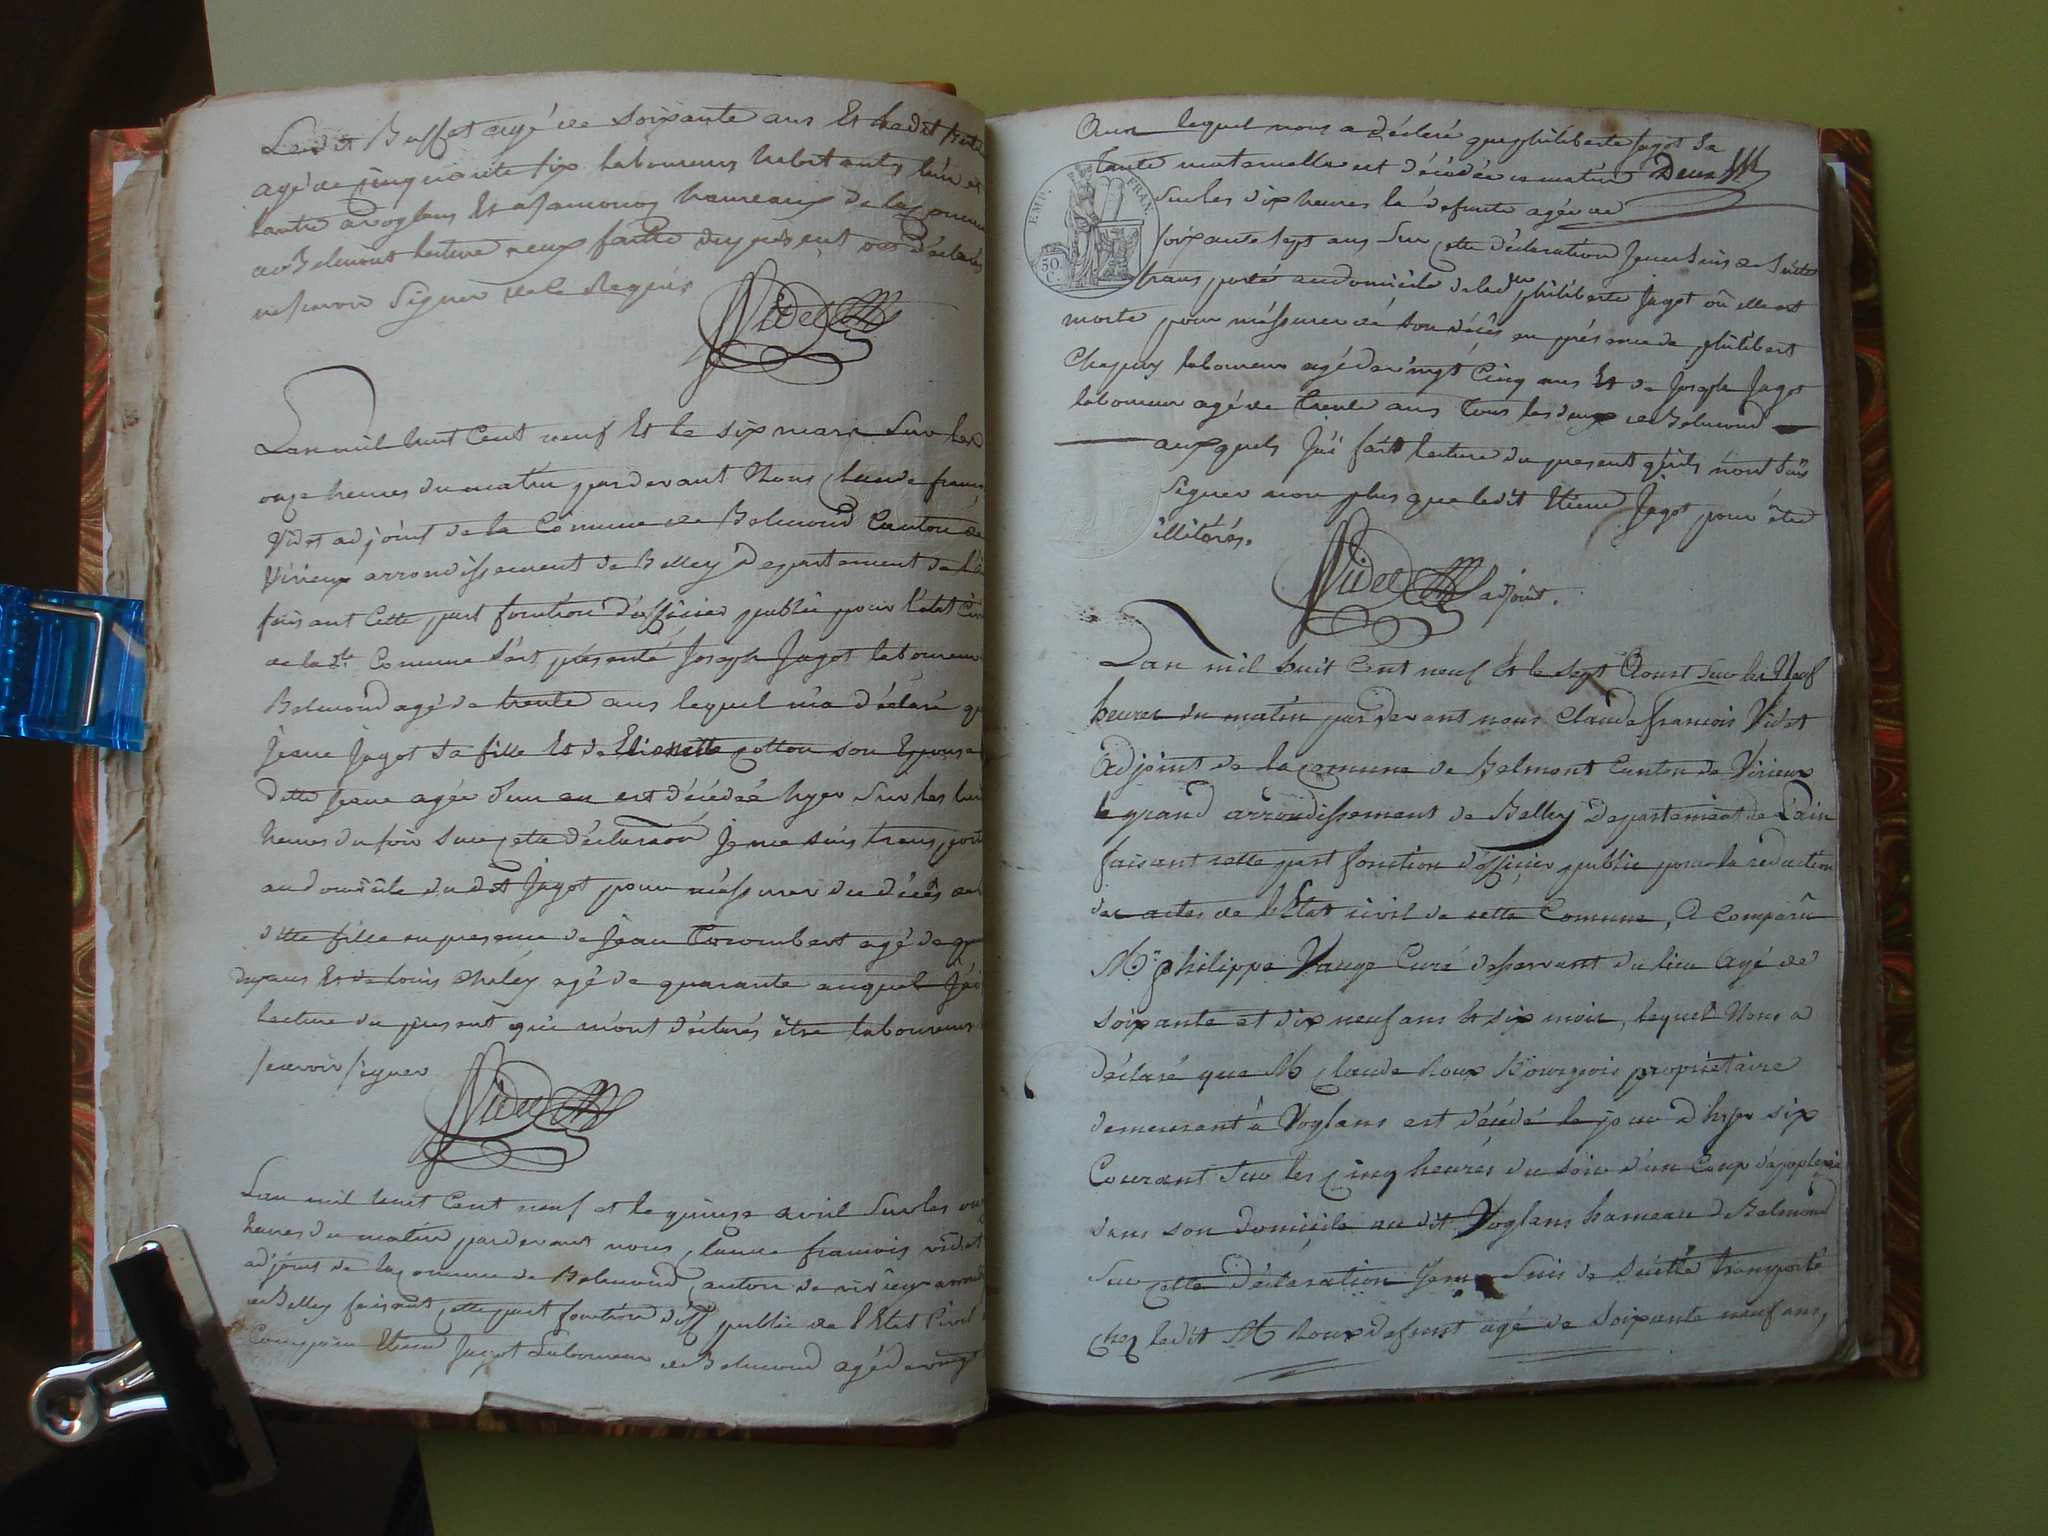 Ledit Buffet agé de soixante ans Et
agé de cinquante six laboureurs habitants l'un et
lautre a Voglans Et a hameaux de la Comune
de Belmont lecture eux faitte du présent ont déclarés
ne savoir signer de ce Requis
Videt
Lan mil huit Cent neuf Et le six mars Sur les
onze heures du matin pardevant Nous Claude francois
Videt adjoint de la Commune de Belmond Canton de
Virieux arrondissement de Belley Departement de l'
faisant Cette part fonction d'officier public pour l'état Civ
de la dte Commune s'est présenté Joseph Jagot laboureur
Belmond agé de trente ans lequel m'a déclaré q
Jeane Jagot Sa fille Et de cotton son Epouse
dette Jeane agée d'un an est décédée hyer Sur les
heures du soir Sur cette déclaration Je me suis transporté
au domicile du dit Jagot pour m'assurer du décés de
ditte fille en presence de Jean agé de
ans Et de Louis agé de quarante auquel J'ai
lecture du présent qui m'ont déclarés être laboureurs
scavoir signer
Videt
Lan mil huit Cent neuf et le quinze avril Sur les
heures du matin pardevant nous Claude francois videt
adjoint de la Commune de Belmond Canton de virieux arrond
de Belley faisant cette part fonction d'off public de l'Etat Civil
Comparu Etiene Jagot Laboureur de Belmond agé de vingt
lequel nous a déclaré que philiberte Jagot Sa
tante maternelle est décédée ce matin Deux
Sur les dix heures la défunte agée de
soixante sept ans Sur cette déclaration Je me Suis de Suitte
transporté au domicile de ladte philiberte Jagot où elle est
morte pour m'assurer de Son décès en présence de philibert
Chapuy laboureur agé de vingt Cinq ans Et de Joseph Jagot
laboureur agé de trente ans tous les deux de Belmond
auxquels J'ai fait lecture du present qu'ils n'ont Sus
Signer non plus que ledit Etiene Jagot pour être
illitérés.
EMP. FRAN.
50 C.
Videt adjoint.
Lan mil huit Cent neuf Et le sept Aoust Sur les Neuf
heures du matin pardevant nous Claude francois Videt
Adjoint de la Comune de Belmont Canton de Virieux
le grand arrondissement de Belley Departement de L'ain
faisant cette part fonction d'officier public pour la rédaction
des actes de l'Etat civil de cette Commune, A Comparu
Mr philippe Cure desservant du lieu Agé de
soixante et dix neuf ans Et six mois, lequel Nous a
déclaré que M Claude Roux Bourgeois propriétaire
demeurant à Voglans est décédé le jour d'hyer six
Courant Sur les Cinq heures du soir d'un Coup d'apoplexie
dans son domicile au dit Voglans hameau de Belmond
Sur cette déclaration Je me Suis de Suitte transporté
chez ledit M Roux défunt agé de Soixante neuf ans,